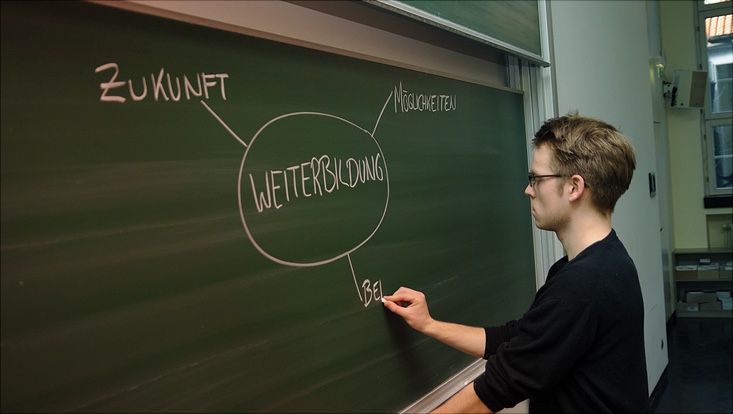 ZUKUNFT
MÖGLICHKEITEN
WEITERBILDUNG
BEL